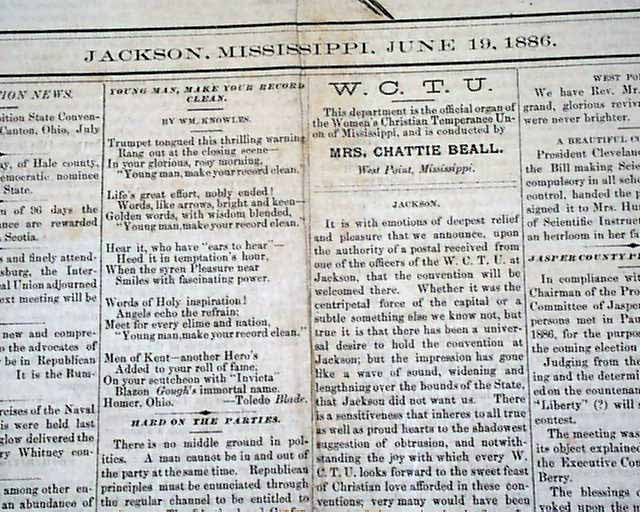 JACKSON, MISSISSIPPI, JUNE 19, 1886.
TION NEWS.
bition State Conven-
Canton, Ohio, July
ay, of Hale county,
emocratic nominee
State.
n of 96 days the
nce are rewarded
Scotia.
s and finely attend-
sburg, the Inter-
al Union adjourned
ext meeting will be
new and compre-
o the advocates of
be in Republican
It is the Rum-
rcises of the Naval
is were held last
glow delivered the
ry Whitney con-
among other en-
an abundance of
YOUNG MAN, MAKE YOUR RECORD
CLEAN.
BY WM. KNOWLES.
Trumpet tongued this thrilling warning
Rang out at the closing scene—
In your glorious, rosy morning,
"Young man, make your record clean."
Life's great effort, nobly ended!
Words, like arrows, bright and keen—
Golden words, with wisdom blended,
"Young man, make your record clean."
Hear it, who have "ears to hear"—
Heed it in temptation's hour,
When the syren Pleasure near
Smiles with fascinating power.
Words of Holy inspiration!
Angels echo the refrain;
Meet for every clime and nation,
"Young man, make your record clean."
Men of Kent—another Hero's
Added to your roll of fame;
On your scutcheon with "Invicta"
Blazon Gough's immortal name.
Homer, Ohio. —Toledo Blade.
HARD ON THE PARTIES.
There is no middle ground in pol-
itics. A man cannot be in and out of
the party at the same time. Republican
principles must be enunciated through
the regular channel to be entitled to
W. C. T. U.
This department is the official organ of
the Women's Christian Temperance Un-
on of Mississippi, and is conducted by
MRS. CHATTIE BEALL.
West Point, Mississippi.
JACKSON.
It is with emotions of deepest relief
and pleasure that we announce, upon
the authority of a postal received from
one of the officers of the W. C. T. U. at
Jackson, that the convention will be
welcomed there. Whether it was the
centripetal force of the capital or a
subtle something else we know not, but
true it is that there has been a univer-
sal desire to hold the convention at
Jackson; but the impression has gone
like a wave of sound, widening and
lengthning over the bounds of the State,
that Jackson did not want us. There
is a sensitiveness that inheres to all true
as well as proud hearts to the shadowest
suggestion of obtrusion, and notwith-
standing the joy with which every W.
C. T. U. looks forward to the sweet feast
of Christian love afforded in these con-
ventions; very many would have been
WEST PO
We have Rev. Mr.
grand, glorious reviv
were never brighter.
A BEAUTIFUL C
President Clevelan
the Bill making Scie
compulsory in all scho
control, handed the p
signed it to Mrs. Hu
of Scientific Instruc
an heirloom in her fa
JASPER COUNTY P
In compliance wit
Chairman of the Pro
Committee of Jaspe
persons met in Pau
1886, for the purpos
the coming election
Judging from the
ing and the determi
ed on the countenan
"Liberty" (?) will
contest.
The meeting was
its object explained
the Executive Com
Berry.
The blessings
voked upon the